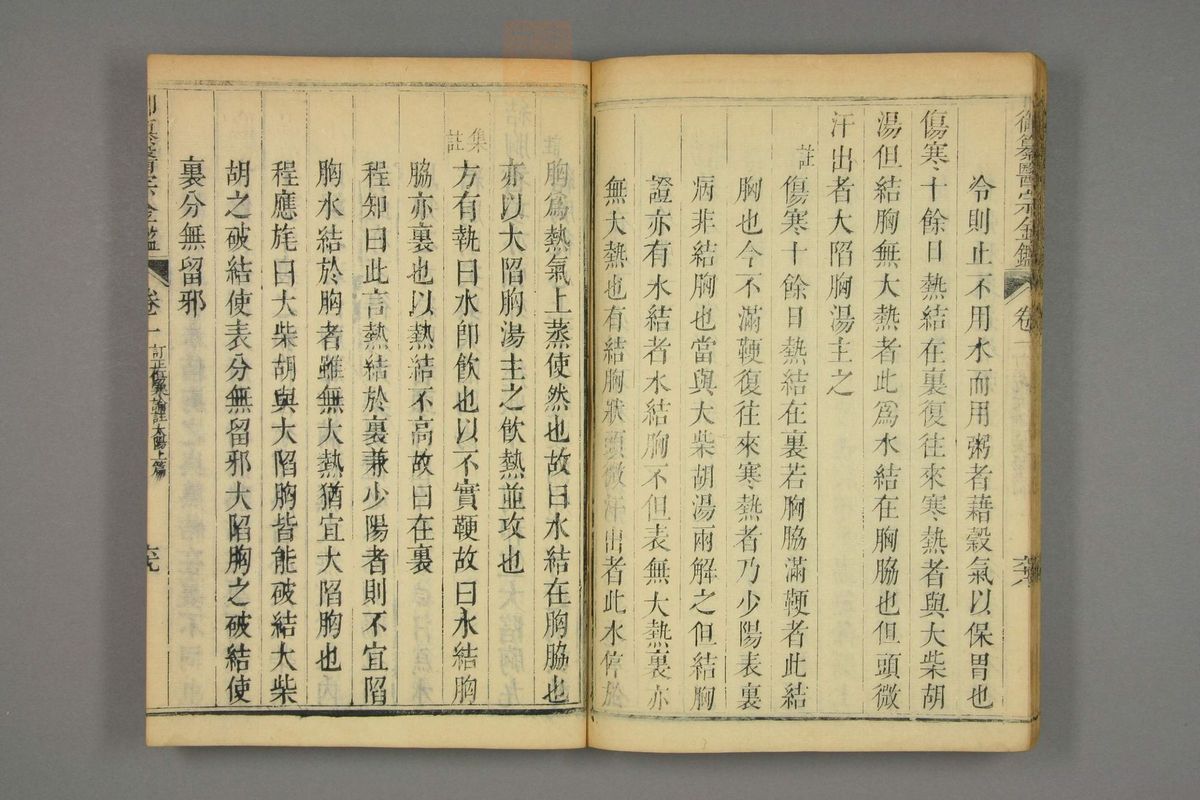 御纂醫宗金鑑
卷
令則止不用水而用粥者藉穀氣以保胃也
傷寒十餘日熱結在裏復往來寒熱者與大柴胡
湯但結胸無大熱者此爲水結在胸脇也但頭微
汗出者大陷胸湯主之
註傷寒十餘日熱結在裏若胸脇滿鞕者此結
胸也今不滿鞕復往來寒熱者乃少陽表裏
病非結胸也當與大柴胡湯兩解之但結胸
證亦有水結者水結胸不但表無大熱裏亦
無大熱也有結胸狀頭微汗出者此水停於
註胸爲熱氣上蒸使然也故曰水結在胸脇也
亦以大陷胸湯主之飲熱並攻也
集註方有執曰水卽飲也以不實鞕故曰水結胸
脇亦裏也以熱結不高故曰在裏
程知曰此言熱結於裏兼少陽者則不宜陷
胸水結於胸者雖無大熱猶宜大陷胸也
程應旄曰大柴胡與大陷胸皆能破結大柴
胡之破結使表分無留邪大陷胸之破結使
裏分無留邪
醫宗金鑑
卷一 訂正傷寒論註太陽上篇